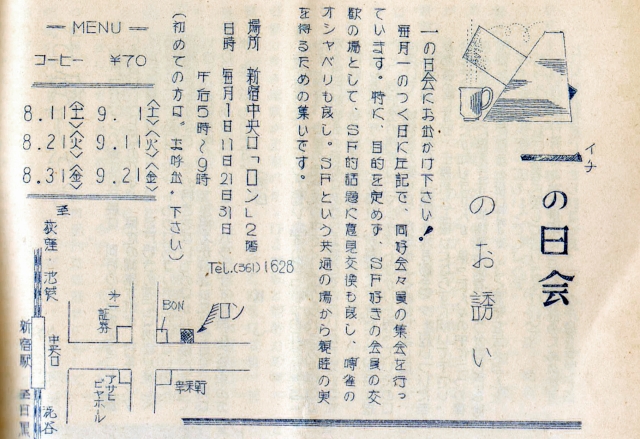 イチ
一の日会
のお誘い
一の日会にお出かけ下さい!
毎月一のつく日に左記で、同好会々員の集会を行っ
ています。特に、目的を定めず、SF好きの会員の交
歓の場として、SF的話題に意見交換も良し、麻雀の
オシャベリも良し。SFという共通の場から親睦の実
を得るための集いです。
場所 新宿中央口「ロン」2階
日時 毎月1日11日21日31日
午后5時〜9時
(初めての方は、お呼出し下さい)
Tel.(361)1628
MENU
コーヒー ¥70
8.11〈土〉 9. 1〈土〉
8.21〈火〉 9.11〈火〉
8.31〈金〉 9.21〈金〉
至
荻窪・池袋
新宿駅
中央口
至目黒
渋谷
才一証券
BON
ロン
アサヒビヤホール
幸末町